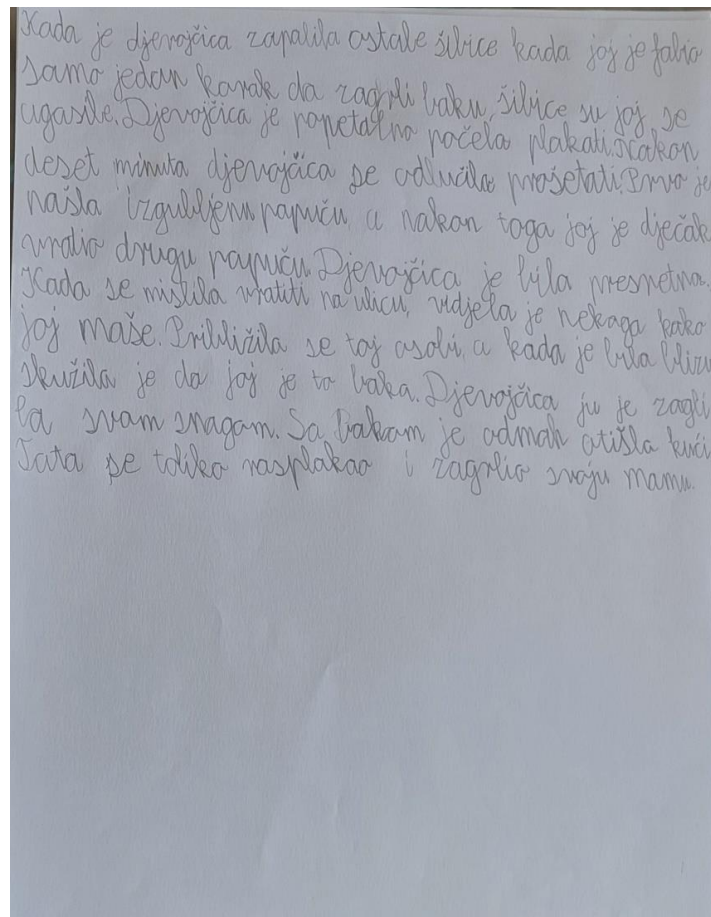 Kada je djevojčica zapalila ostale šibice kada joj je falio
samo jedan korak da zagrli baku, šibice su joj se
ugasile. Djevojčica je ropetalno počela plakati. Nakon
deset minuta djevojčica se odlučila prošetati. Prvo je
našla izgubljenu papuču, a nakon toga joj je dječak
vratio drugu papuču. Djevojčica je bila presretna.
Kada se mislila vratiti na ulicu, vidjela je nekoga kako
joj maše. Približila se toj osobi, a kada je bila blizu
skužila je da joj je to baka. Djevojčica ju je zagli
la svom snagom. Sa bakom je odmah otišla kući
Tata se toliko rasplakao i zagrlio svoju mamu.